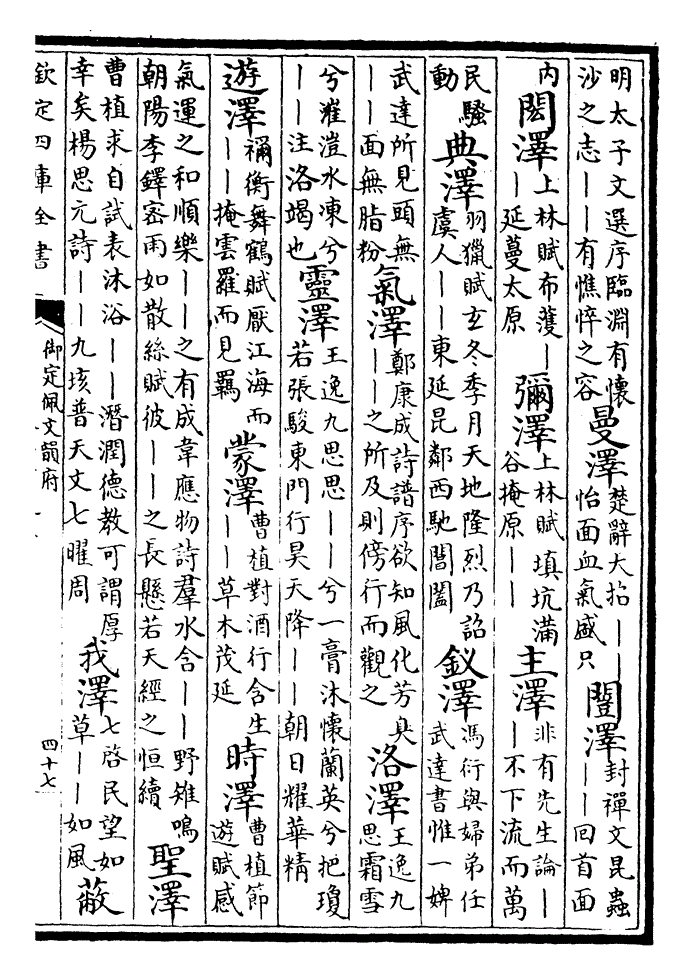 明太子文選序臨淵有懷
沙之志——有憔悴之容
曼澤
楚辭大招——
怡面血氣盛只
闓澤
封禪文昆蟲
——囘首面
内
閎澤
上林賦布濩—
—延蔓太原
彌澤
上林賦填坑滿
谷掩原——
主澤
非有先生論—
—不下流而萬
民騷
動
典澤
羽獵賦玄冬季月天地隆烈乃詔
虞人——東延昆鄰西馳誾闔
釵澤
馮衍與婦弟任
武達書惟一婢
武達所見頭無
——面無脂粉
氣澤
鄭康成詩譜序欲知風化芳臭
——之所及則傍行而觀之
洛澤
王逸九
思霜雪
兮漼溰水凍兮
——注洛竭也
靈澤
王逸九思思——兮一膏沐懷蘭英兮把瓊
若張駿東門行昊天降——朝日耀華精
遊澤
禰衡舞鶴賦厭江海而
——掩雲羅而見羈
蒙澤
曹植對酒行含生
——草木茂延
時澤
曹植節
遊賦感
氣運之和順樂——之有成韋應物詩羣水含——野雉鳴
朝陽李鐸密雨如散絲賦彼——之長懸若天經之恒續
聖澤
曹植求自試表沐浴——潛潤德教可謂厚
幸矣楊思元詩——九垓普天文七曜周
我澤
七啓民望如
草——如風
蔽
欽定四庫全書
御定佩文韻府
四十七